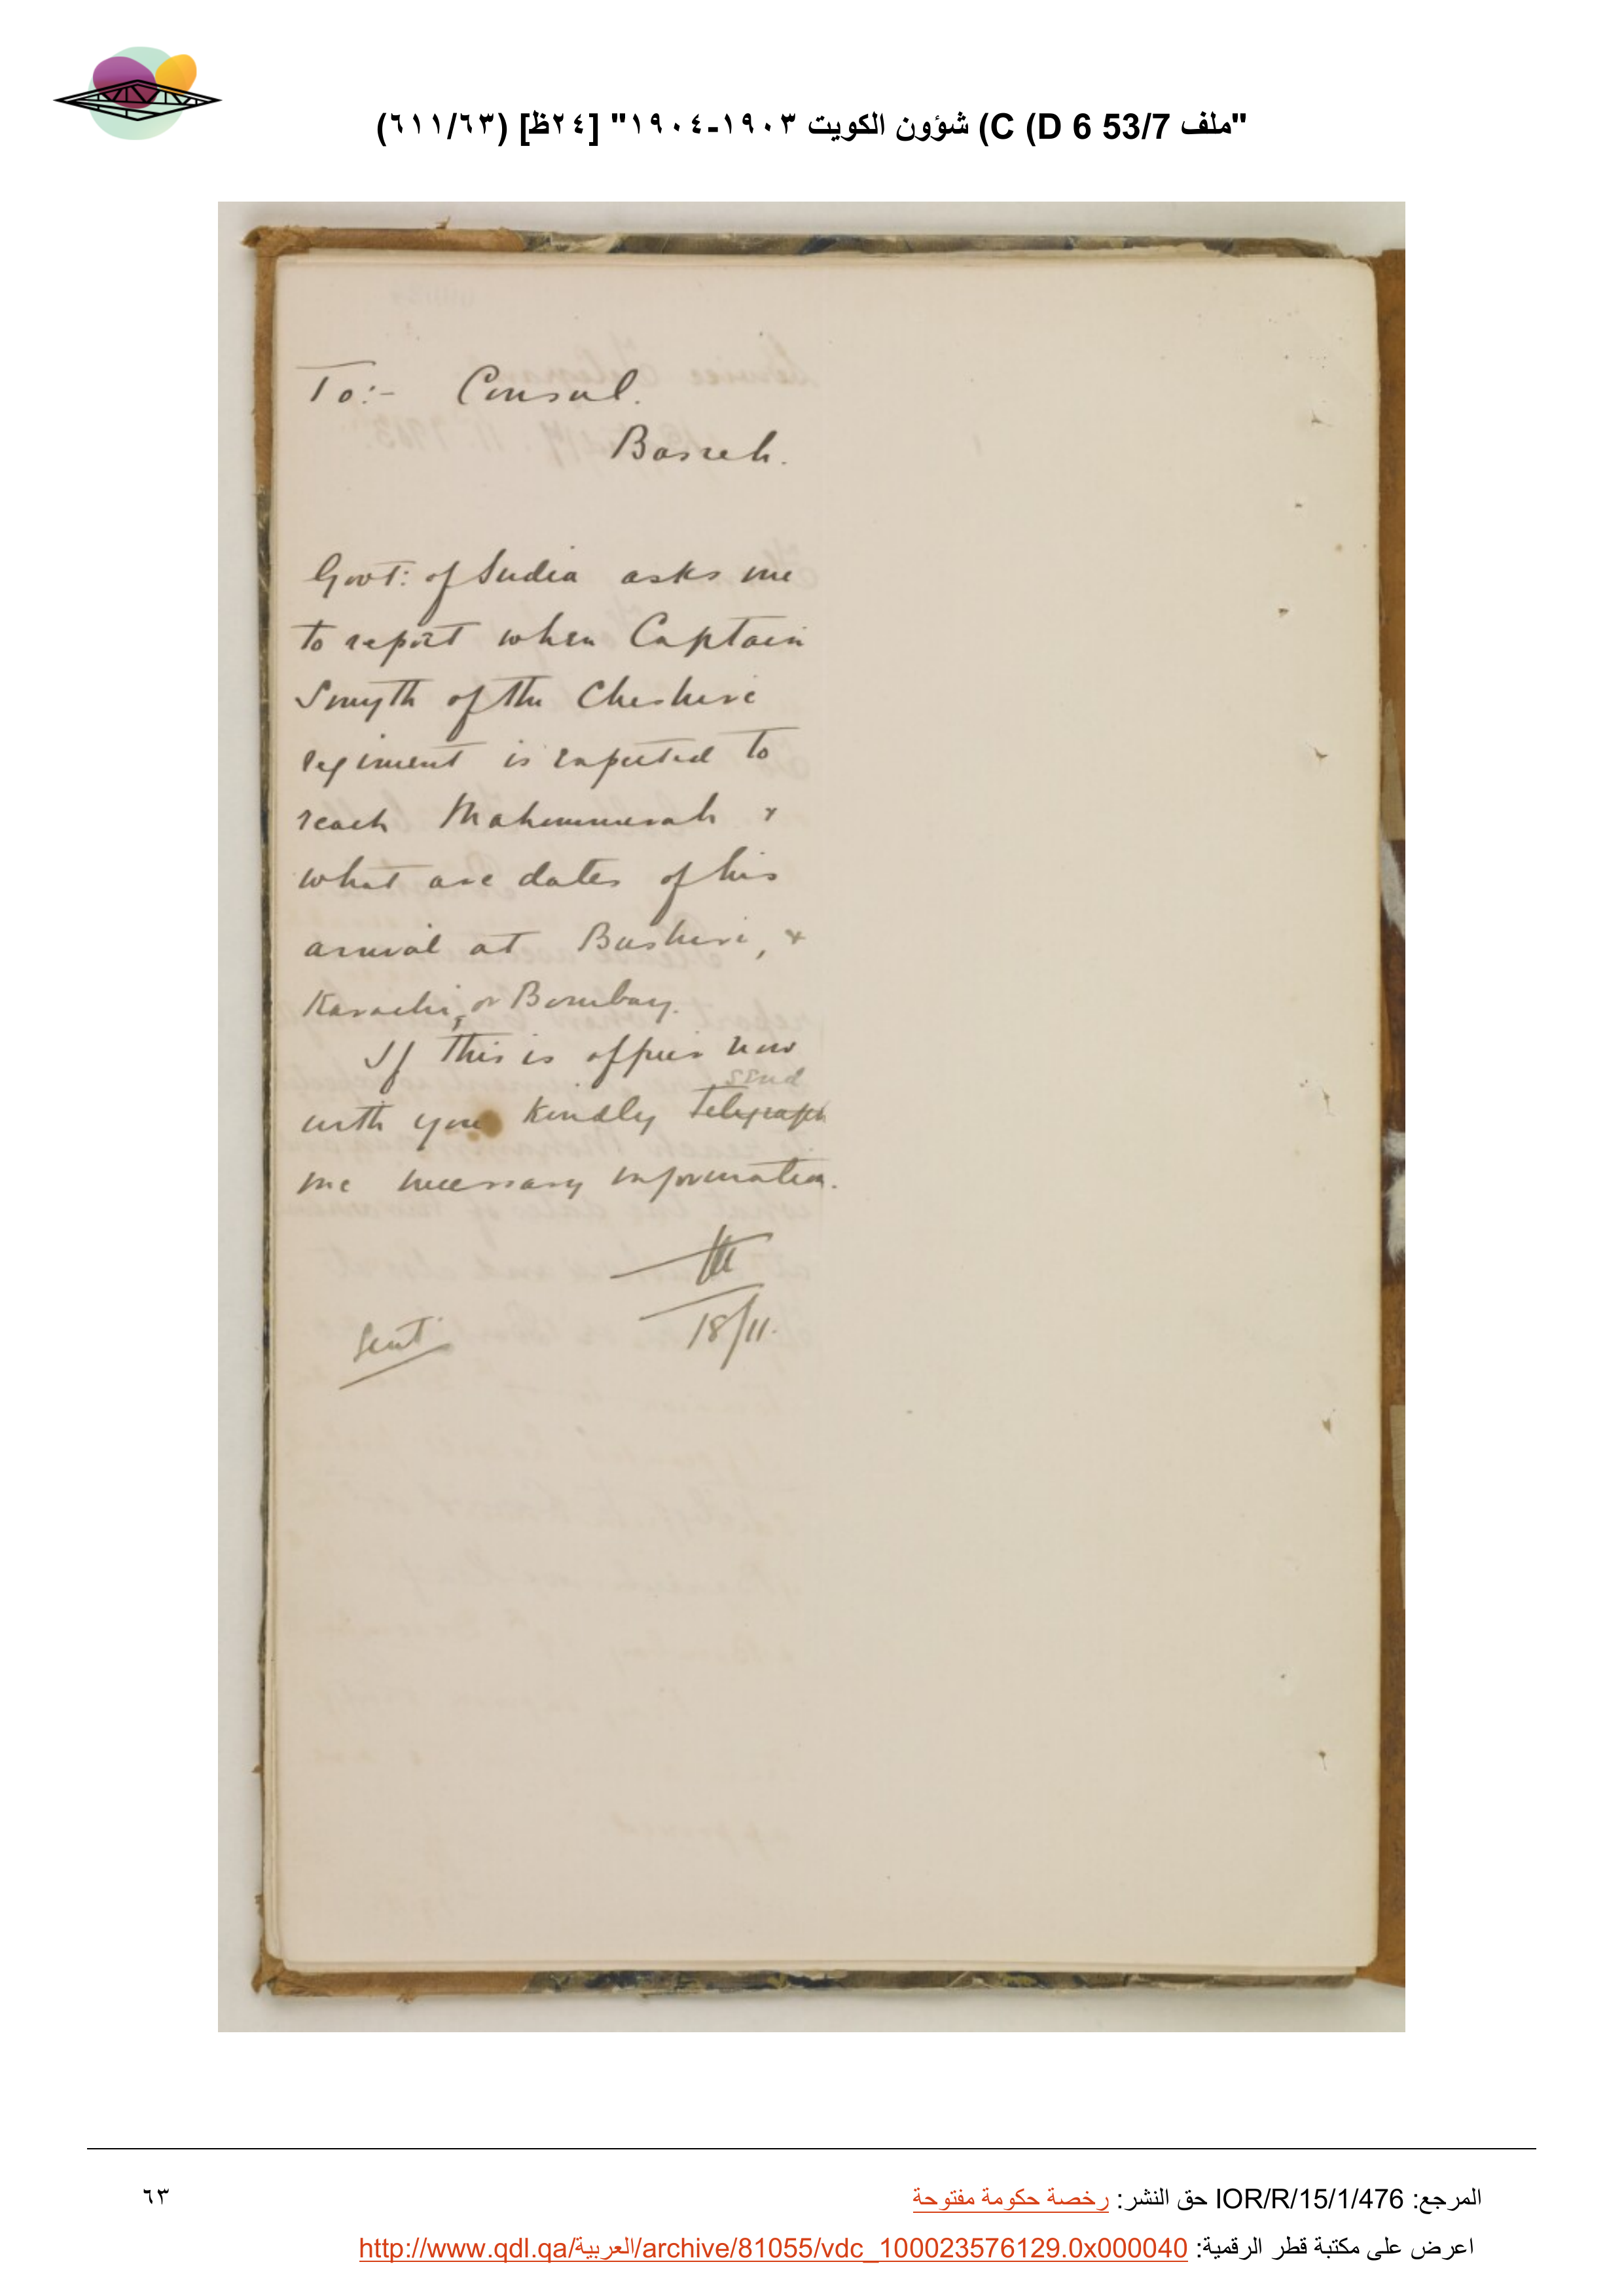 "ملف 53/7 D 6) C) شؤون الكويت ١٩٠٣-١٩٠٤" [٢٤ظ] (٦١١/٦٣)
To:- Consul.
Basreh.
Govt: of India asks me
to report when Captain
Smyth of the Cheshire
regiment is expected to
reach Mahommerah &
what are dates of his
arrival at Bushire, &
Karachi, or Bombay.
If this is officer now
send
with you kindly telegraph
me necessary information.
18/11.
Sent
المرجع: IOR/R/15/1/476 حق النشر: رخصة حكومة مفتوحة
٦٣
اعرض على مكتبة قطر الرقمية: http://www.qdl.qa/العربية/archive/81055/vdc_100023576129.0x000040